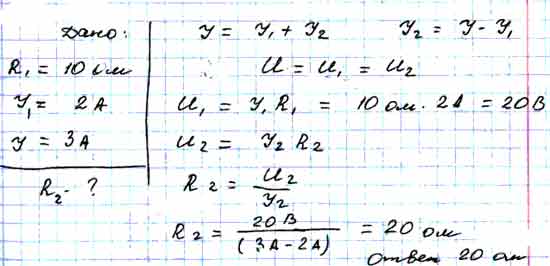 Дано:
R₁ = 10 ом
У₁ = 2 А
У = 3 А
R₂ - ?
У = У₁ + У₂   У₂ = У - У₁
U = U₁ = U₂
U₁ = У₁ R₁ = 10 ом · 2 А = 20 В
U₂ = У₂ R₂
R₂ = U₂ / У₂
R₂ = 20 В / (3А - 2А) = 20 ом
ответ 20 ом